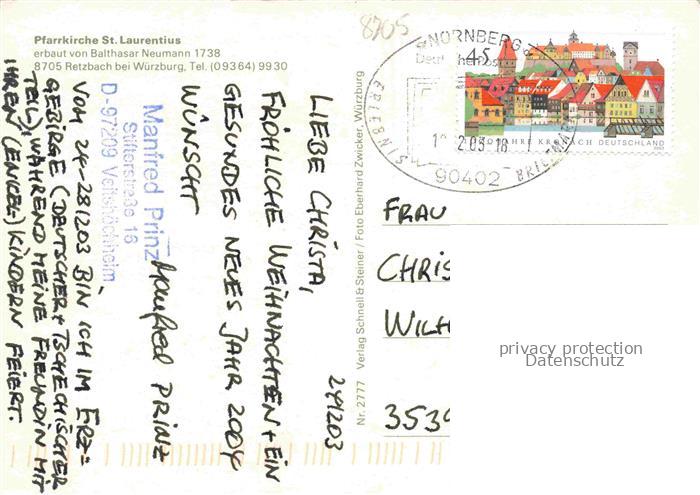 Pfarrkirche St. Laurentius
erbaut von Balthasar Neumann 1738
8705 Retzbach bei Würzburg, Tel. (0 93 64) 99 30
8705
241203
LIEBE CHRISTA,
FRÖHLICHE WEIHNACHTEN + EIN
GESUNDES NEUES JAHR 2004
WÜNSCHT
Manfred PRINZ
Manfred Prinz
Stifterstraße 16
D-97209 Veitshöchheim
VOM 24-281203 BIN ICH IM ERZ=
GEBIRGE (DEUTSCHER + TSCHECHISCHER
TEIL), WÄHREND MEINE FREUNDIN MIT
IHREN (ENKEL-) KINDERN FEIERT.
Nr. 2777 Verlag Schnell & Steiner / Foto Eberhard Zwicker, Würzburg
NÜRNBERG
Deutsche Post
45
ERLEBNIS
BRIEFMARKEN
2.03-18
90402
JAHRE KRONACH DEUTSCHLAND
FRAU
CHRIS
WILH
3539
privacy protection
Datenschutz